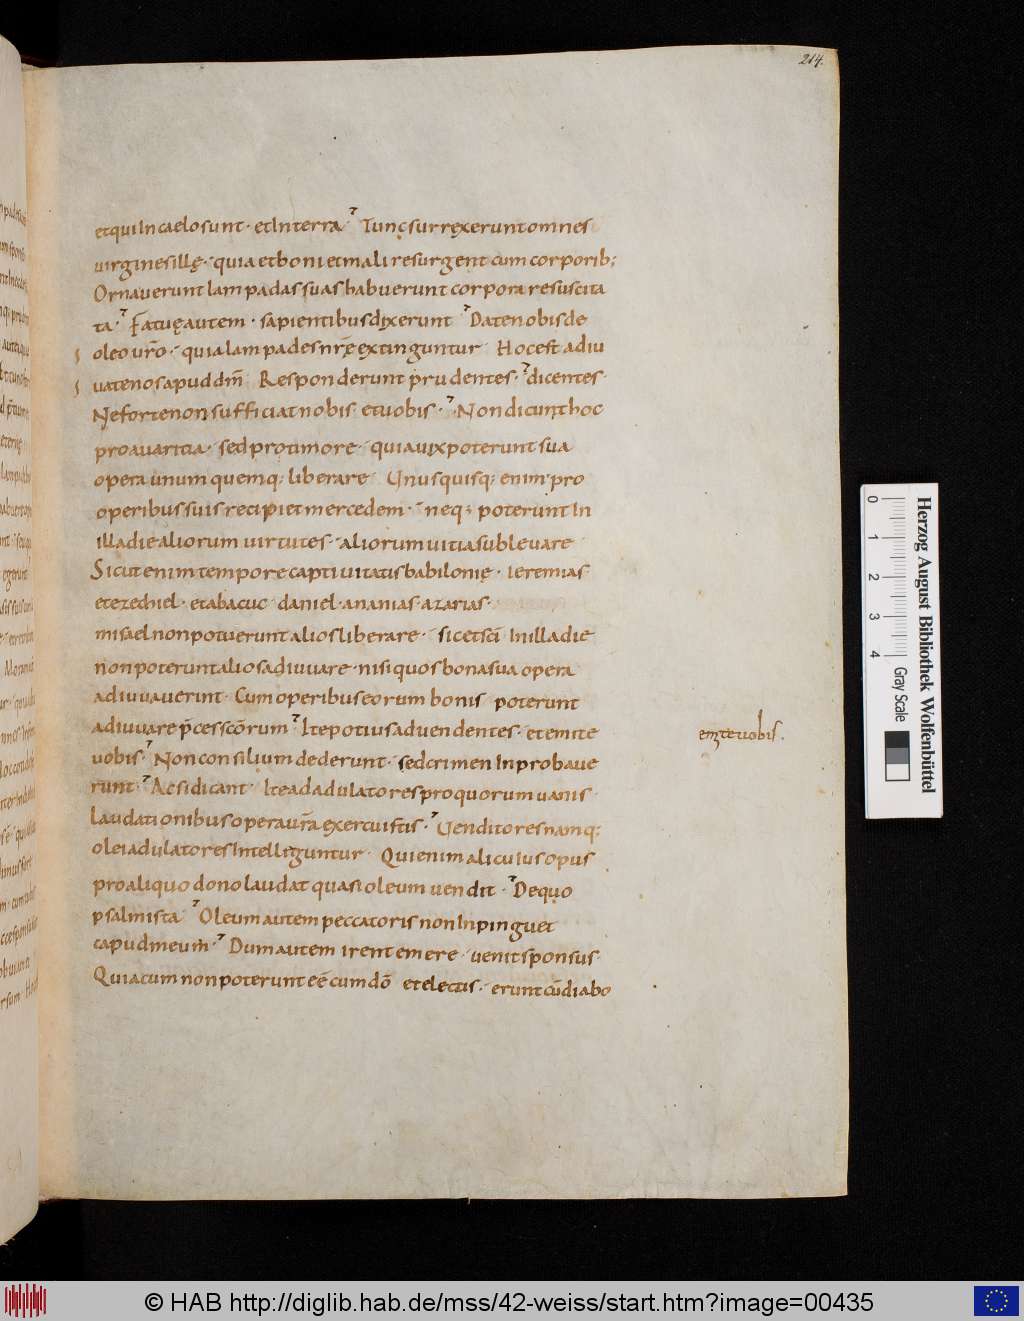 214.
et qui In caelo sunt · et In terra · Tunc surrexerunt omnes
virgines illę · quia et boni et mali resurgent cum corporib;
Ornauerunt lampadas suas habuerunt corpora resuscita
ta · Fatuę autem · sapientibus dixerunt Date nobis de
oleo ur̄o · quia lampades nr̄ę extinguntur Hoc est adiu
uate nos apud dm̄ Responderunt prudentes · dicentes ·
Ne forte non sufficiat nobis et uobis · Non dicunt hoc
pro auaritia · sed pro timore · quia uix poterunt sua
opera unum quemq; liberare Unusquisq; enim pro
operibus suis recipiet mercedem · neq; poterunt In
illa die aliorum uirtutes · aliorum uitia subleuare
Sicut enim tempore captiuitatis babilonię · ieremias
et ezechiel · et abacuc daniel · ananias · azarias ·
misael non potuerunt alios liberare · sic et sc̄i In illa die
non poterunt alios adiuuare · nisi quos bona sua opera
adiuuauerint · Cum operibus eorum bonis poterunt
adiuuare p̄ces sc̄orum Ite potius ad uendentes · et emite
uobis · Non consilium dederunt · sed crimen Inprobaue
runt · Ac si dicant · Ite ad adulatores pro quorum uanis
laudationibus opera ur̄a exercuistis · Uenditores namq;
olei adulatores Intelleguntur · Qui enim alicuius opus
pro aliquo dono laudat quasi oleum uendit · De quo
psalmista Oleum autem peccatoris non Inpinguet
caput meum · Dum autem irent emere · uenit sponsus
Quia cum non poterunt eē cum dō et electis · erunt cū diabo
emite uobis .
Herzog August Bibliothek Wolfenbüttel
Gray Scale
0 1 2 3 4
© HAB http://diglib.hab.de/mss/42-weiss/start.htm?image=00435